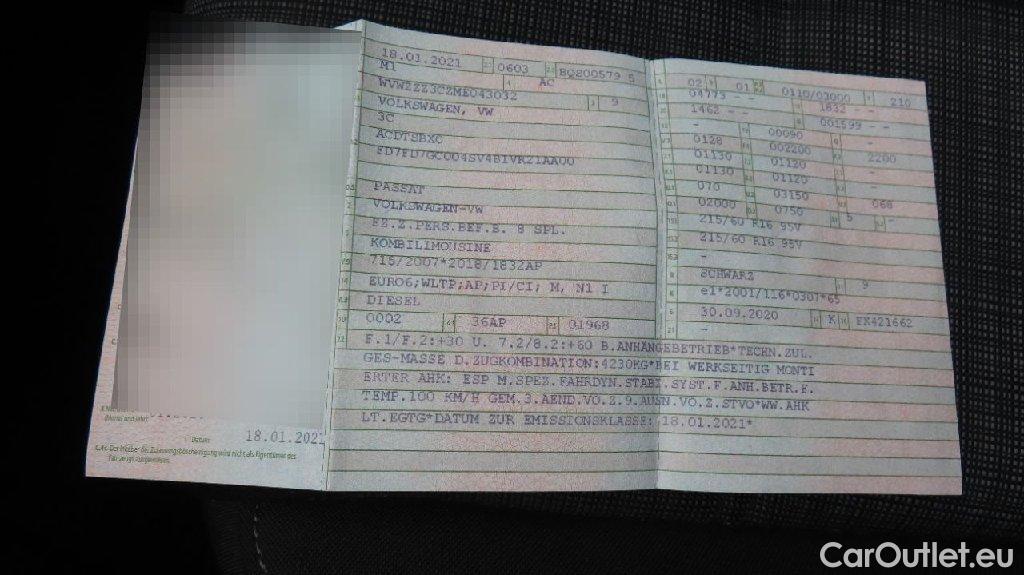 Datum
18.01.2021
18.01.2021 0603 BQ200579 5
M1 AC
WVWZZZ3CZME043032 9
VOLKSWAGEN, VW
3C
ACDTSBXC
FD7FD7GC004SV4B1VR21AA00
PASSAT
VOLKSWAGEN-VW
FZ.Z.PERS.BEF.B. 8 SPL.
KOMBILIMOUSINE
715/2007*2018/1832AP
EURO6;WLTP;AP;PI/CI; M, N1 I
DIESEL
0002 36AP 01968
F.1/F.2:+30 U. 7.2/8.2:+60 B.ANHÄNGEBETRIEB*TECHN.ZUL.
GES-MASSE D.ZUGKOMBINATION:4230KG*BEI WERKSEITIG MONTI
ERTER AHK: ESP M.SPEZ.FAHRDYN.STABI.SYST.F.ANH.BETR.F.
TEMP.100 KM/H GEM.3.AEND.VO.Z.9.AUSN.VO.Z.STVO*WW.AHK
LT.EGTG*DATUM ZUR EMISSIONSKLASSE: 18.01.2021*
02 01 0110/03000 210
04773 - - 1832 - -
1462 - - 001599 - -
- 00090 -
0128 002200 2200
01130 01120 -
01130 01120 -
070 03150 068
02000 0750 5 -
215/60 R16 95V
215/60 R16 95V
-
SCHWARZ 9
e1*2001/116*0307*65
30.09.2020 K FK421662
-
CarOutlet.eu